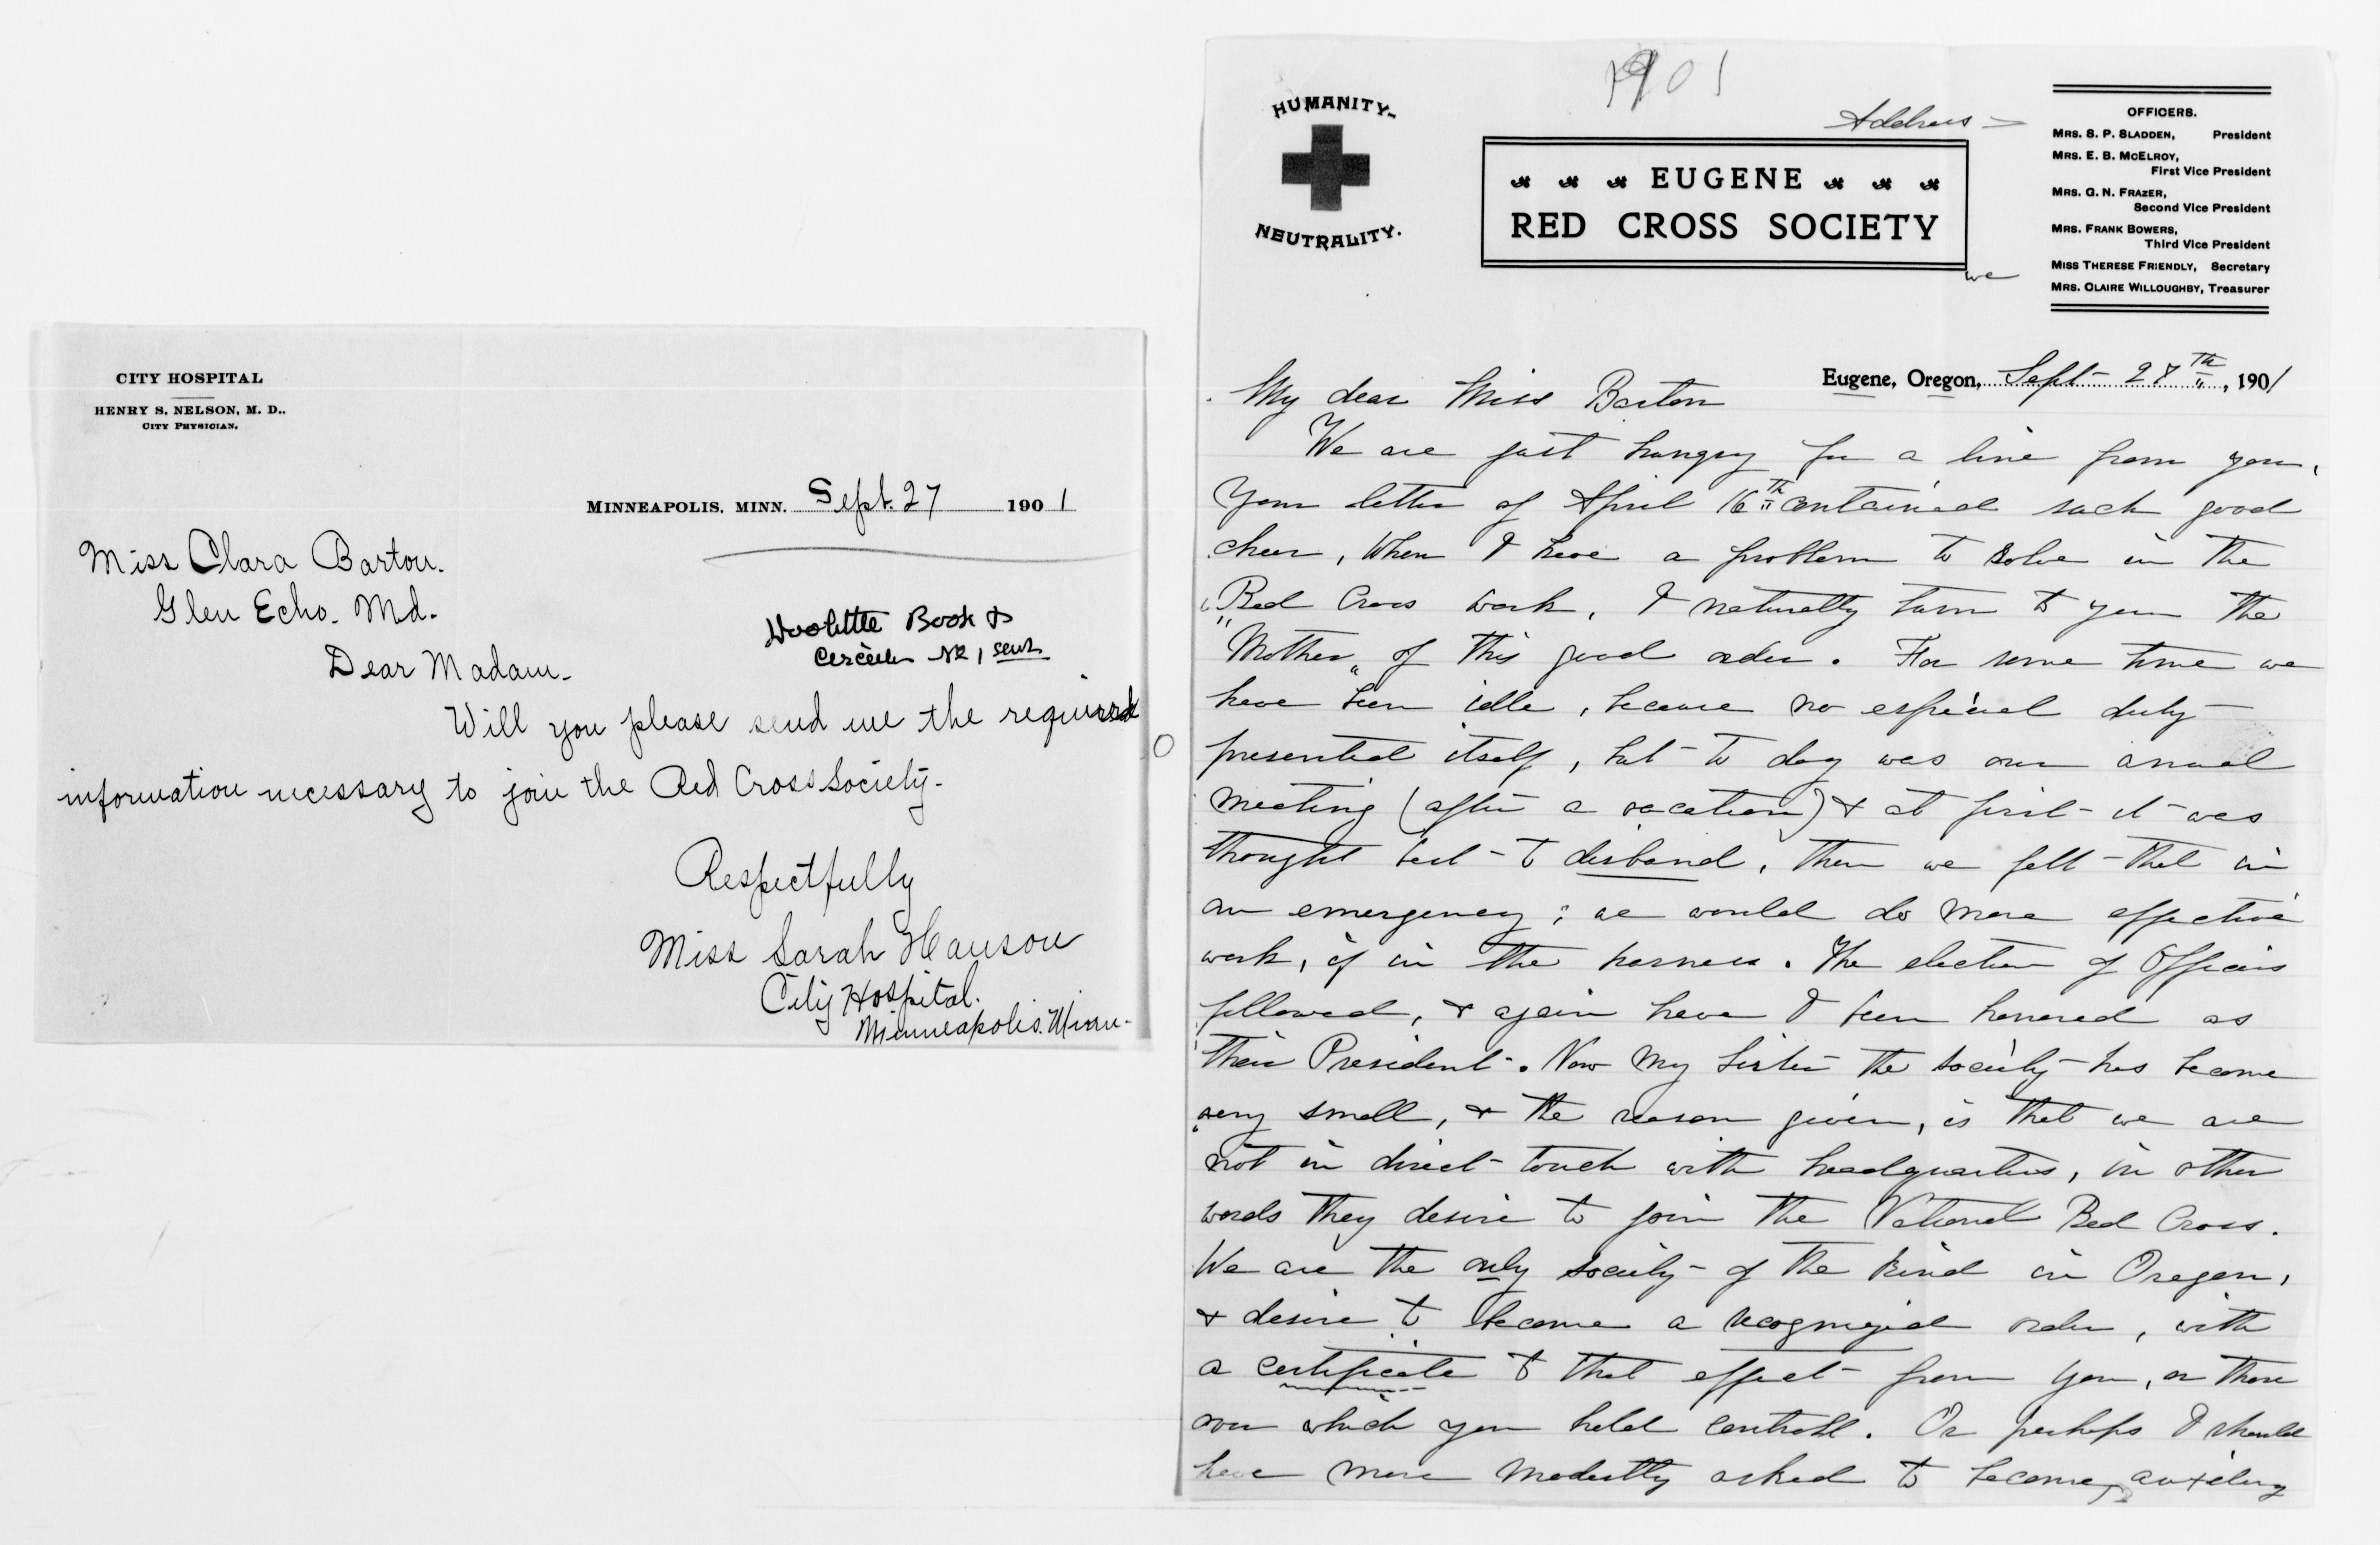 CITY HOSPITAL
HENRY S. NELSON, M. D..
CITY PHYSICIAN.
MINNEAPOLIS, MINN. Sept. 27 1901
Miss Clara Barton.
Glen Echo. Md.
Book &
No 1 sent
Dear Madam-
Will you please send me the required
information necessary to join the Red Cross Society-
Respectfully
Miss Sarah Hanson
City Hospital.
Minneapolis. Minn-
1901
Address -
HUMANITY-
NEUTRALITY.
EUGENE
RED CROSS SOCIETY
we
OFFICERS.
MRS. S. P. SLADDEN, President
MRS. E. B. MCELROY,
First Vice President
MRS. G. N. FRAZER,
Second Vice President
MRS. FRANK BOWERS,
Third Vice President
MISS THERESE FRIENDLY, Secretary
MRS. CLAIRE WILLOUGHBY, Treasurer
Eugene, Oregon, Sept- 27th, 1901
My dear Miss Barton
We are just hungry for a line from you,
Your letter of April 16th contained such good
cheer, When I have a problem to solve in the
Red Cross work, I naturally turn to you the
"Mother" of this good order. For some time we
have been idle, because no especial duty-
presented itself, but- to day was our annual
meeting (after a vacation) & at first- it- was
thought best- to disband, then we felt- that in
an emergency; we would do more effective
work, if in the harness. The election of Officers
followed, & again have I been honored as
their President-. Now my sister the society- has become
very small, & the reason given, is that we are
not in direct- touch with headquarters, in other
words they desire to join the National Red Cross.
We are the only society- of the kind in Oregon,
& desire to become a recognized order, with
a certificate to that effect- from you, or those
over which you hold controll. Or perhaps I should
have more modestly asked to become auxilury